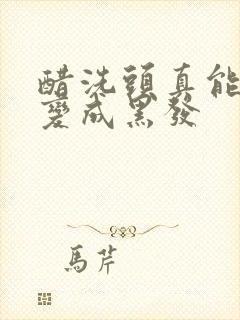 醋洗頭真能
變成黑發
馬芹